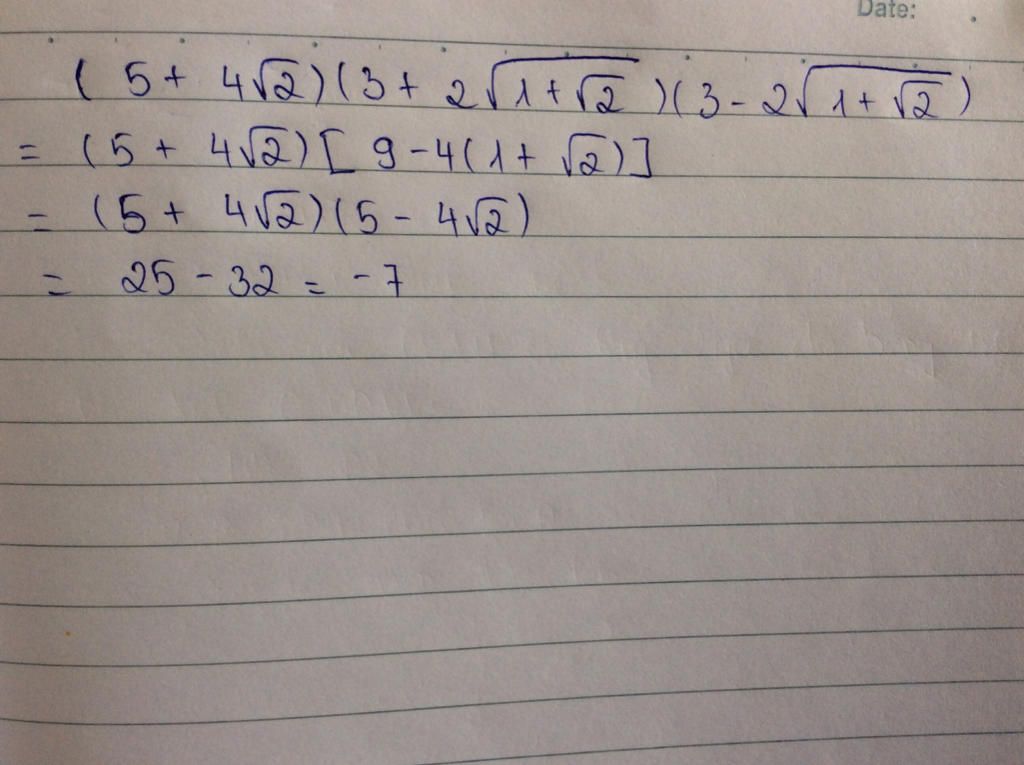 Date:
( 5 + 4√2)(3 + 2√(1+√2))(3 - 2√(1+√2))
= (5 + 4√2)[ 9 - 4(1 + √2)]
= (5 + 4√2)(5 - 4√2)
= 25 - 32 = -7